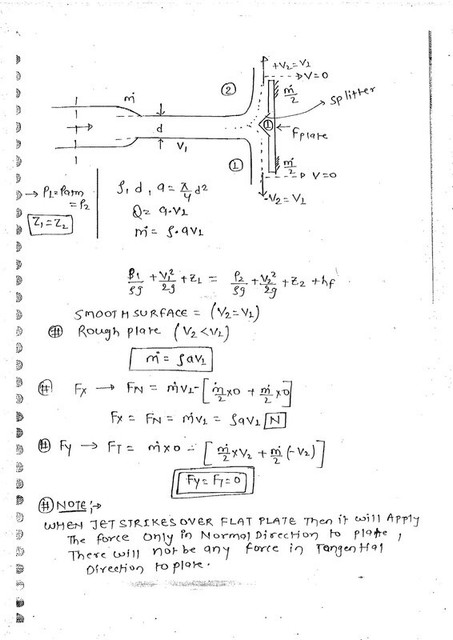 +V2=V1
②
→V=0
ṁ
ṁ/2
splitter
d
①
Fplate
V1
①
ṁ/2
→ V=0
-V2=V1
→ P1=Patm
=P2
Z1=Z2
ρ, d, a = π/4 d2
Q = a.V1
ṁ = ρ.aV1
P1/ρg + V1²/2g + Z1 = P2/ρg + V2²/2g + Z2 + hf
SMOOTH SURFACE = (V2=V1)
# Rough plate (V2<V1)
ṁ = ρaV1
# Fx → FN = ṁV1-[ṁ/2 x0 + ṁ/2 x0]
Fx = FN = ṁV1 = ρaV1 N
# Fy → FT = ṁx0 - [ṁ/2 xV2 + ṁ/2 (-V2)]
Fy = FT = 0
# NOTE:→
WHEN JET STRIKES OVER FLAT PLATE Then it will Apply
The force only in Normal Direction to plate,
There will not be any force in Tangential
Direction to plate.